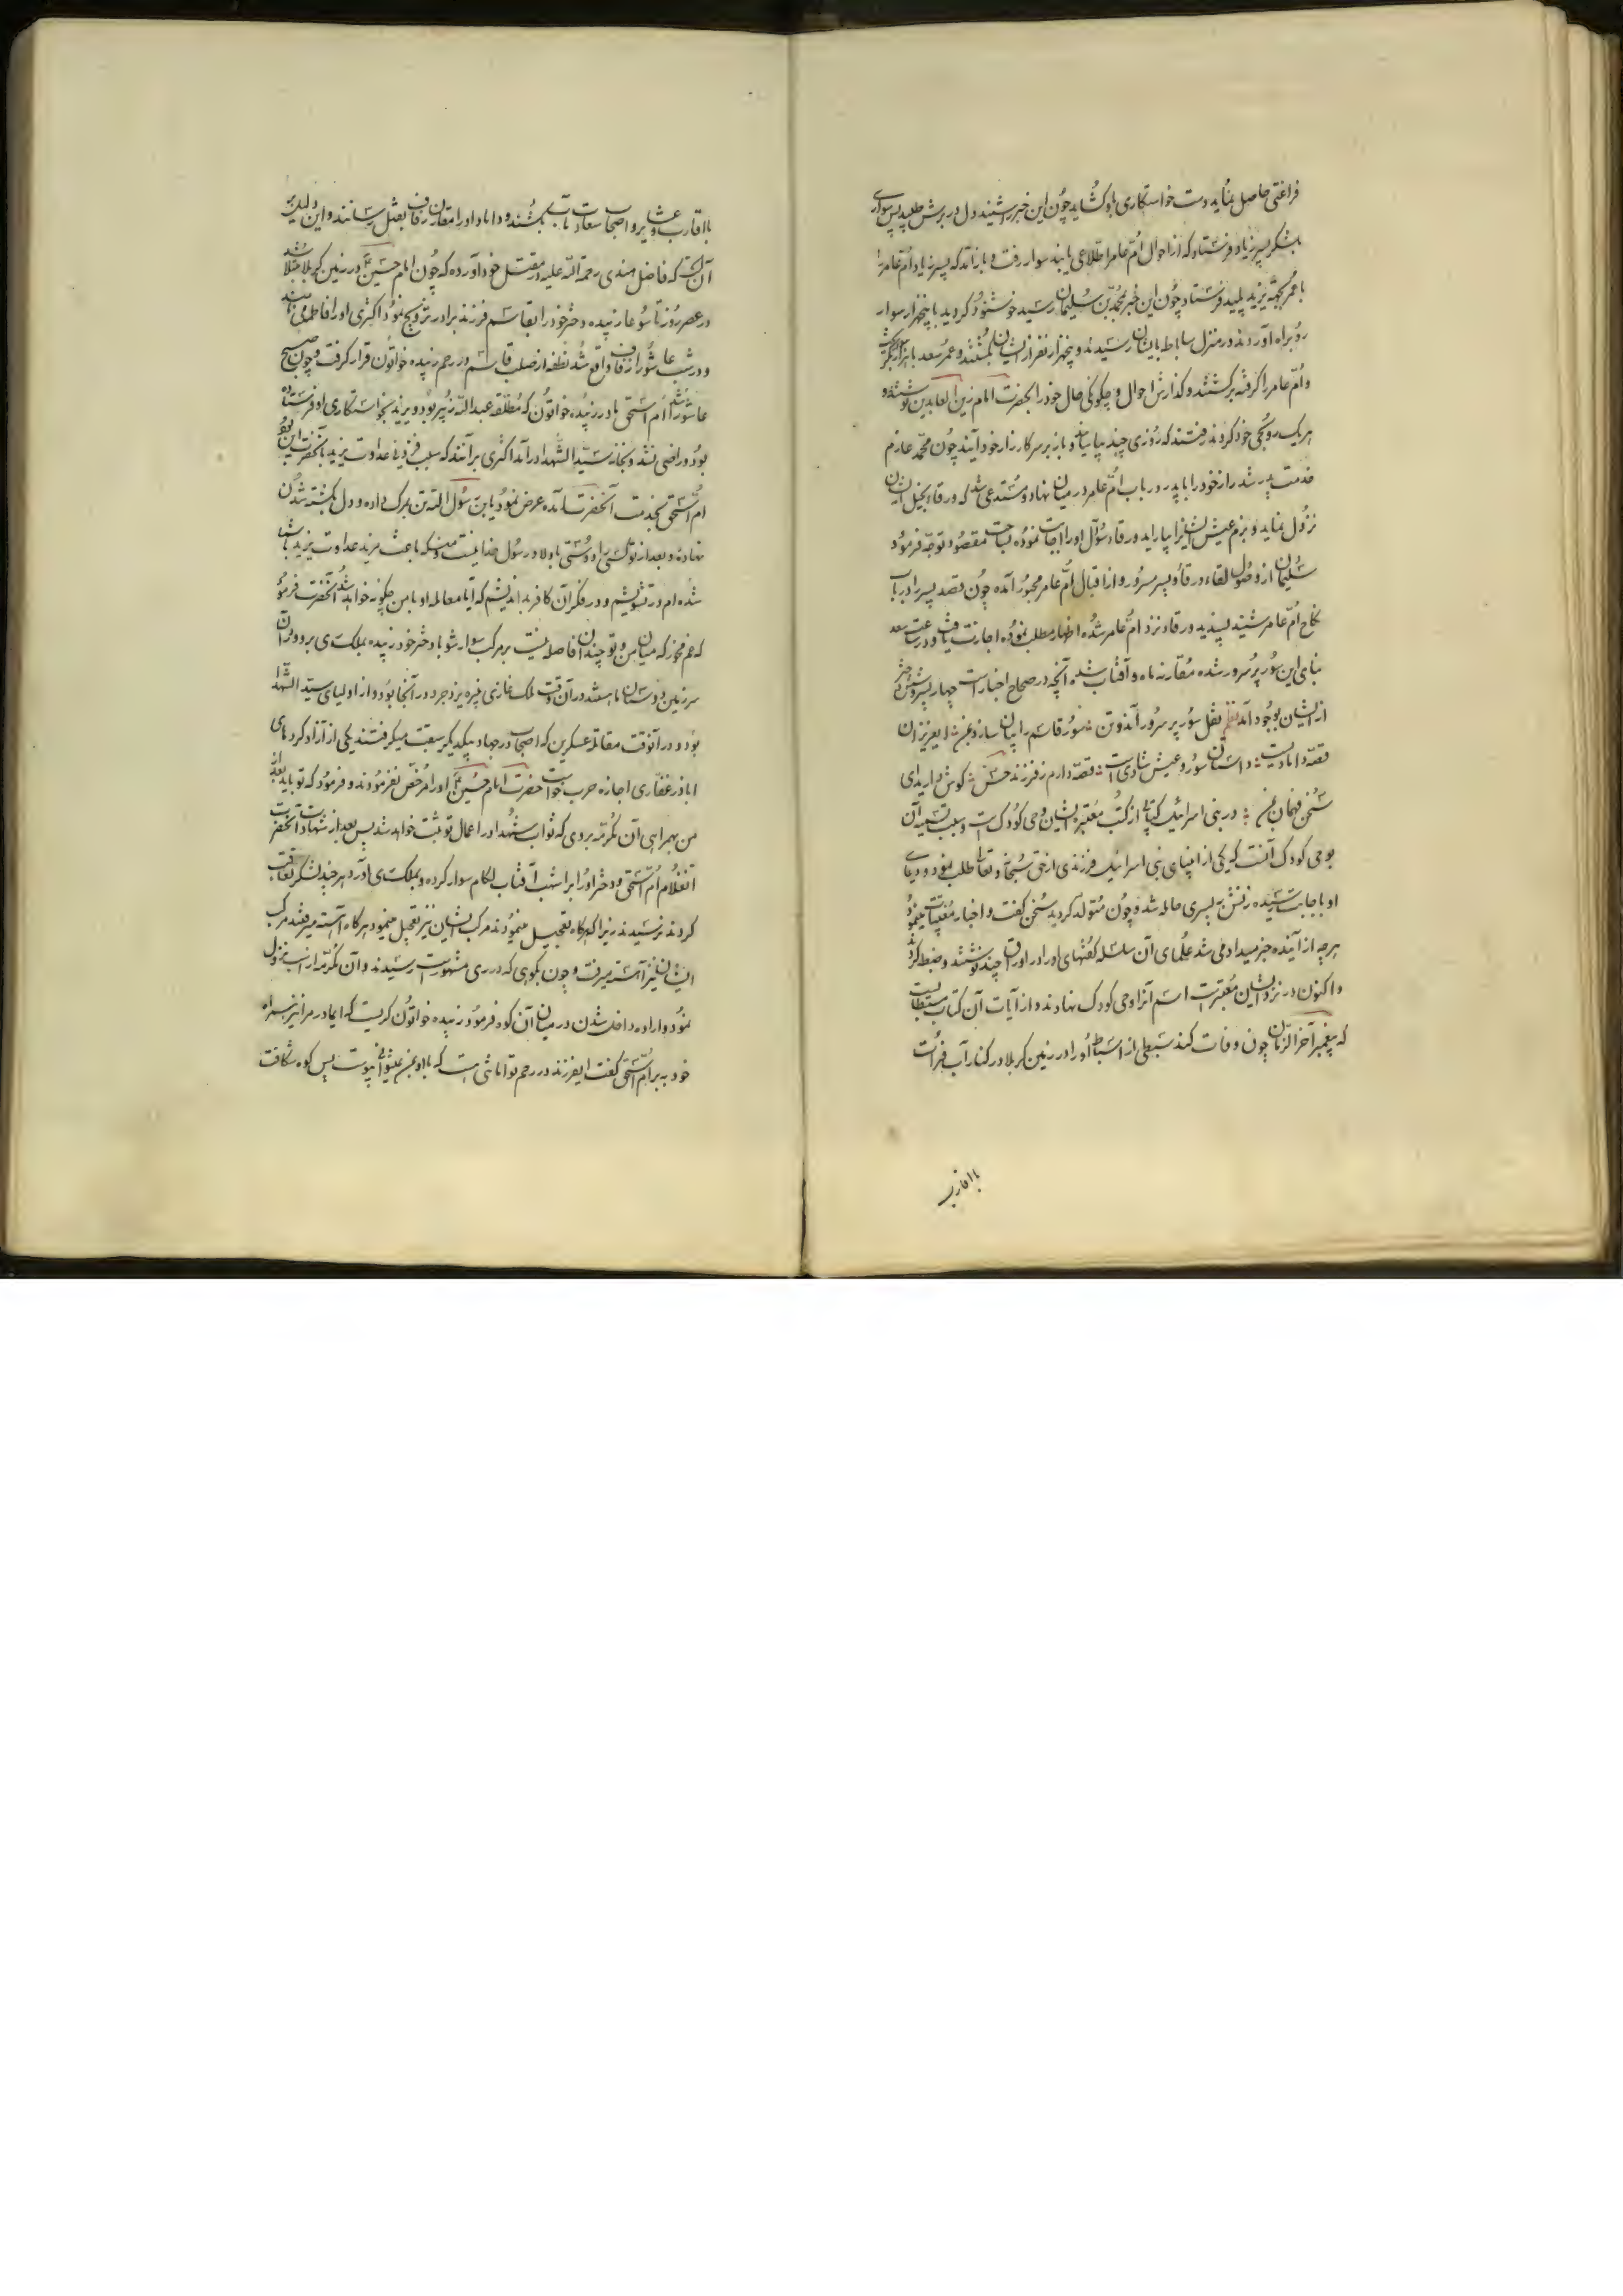 فراغتی حاصل نماید دست خواستکاری باو کشاید چون این خبر شنید دل در برش طپید پس سواری
بلشکر پسر زیاد فرستاد که از احوال ام عامر اطلاعی یابند سوار رفت و باز آمد که پسر زیاد ام عامر را
با عمر بجهة یزید پلید فرستاد چون این خبر بمحمد بن سلیمان رسید خوشنود کردید با پنجهزار سوار
رو براه آوردند در منزل ساباط بایشان رسیدند و پنجهزار نفر از ایشان بکشتند و عمر سعد با هزار کس بکریخت
و ام عامر را کرفته برکشتند و کذارش احوال و چکونکی حال خود را بحضرت امام زین العابدین نوشتند و
هر یک رو بکنجی خود کردند رفتند که روزی چند بیاسایند و باز بر سر کارزار خود آیند چون محمد عازم
خدمت پدر شد راز خود را با پدر در باب ام عامر در میان نهاد و مستدعی شد که ورقاء بخیل ایشان
نزول نماید و بزم عیش ایشانرا بیاراید ورقاء سؤال او را اجابت نموده بساحت مقصود توجه فرمود
سلیمان از وصول لقاء ورقاء و پسر مسرور و از اقبال ام عامر مجبور آمده چون قصد پسر را در باب
نکاح ام عامر شنید پسندید ورقاء نزد ام عامر شده اظهار مطلب نموده اجازت یافت و در ساعت سعد
بنای این سور پر سرور شده مقارنه ماه و آفتاب شد و آنچه در صحاح اخبار است چهار پسر و شش دختر
از ایشان بوجود آمد نظم نقل سور پر سرور آمد و تن سور قاسم را بیان سازد بمن ای عزیزان
قصه دامادیست داستان سور و عیش شادی است قصه دارم ز فرزند حسن کوش دارید ای
سخن فهمان بمن در بنی اسرائیل کتابی از کتب معتبر ایشان وحی کودک است و سبب تسمیه آن
بوحی کودک آنست که یکی از انبیای بنی اسرائیل فرزندی از حق سبحانه و تعالی طلب نمود و دعای
او باجابت رسیده زنش به پسری حامله شد و چون متولد کردید سخن کفت و اخبار مغیبات مینمود
هر چه از آینده خبر میداد می شد علمای آن سلسله کفتهای او را در اوراقی چند نوشتند و ضبط کردند
و اکنون در نزد ایشان معتبر است اسم آنرا وحی کودک نهادند و از آیات آن کتاب مستطاب است
که پیغمبر آخر الزمان چون وفات کند سبطی از اسباط او را در زمین کربلا در کنار آب فرات
با اقارب
با اقارب و عشایر و اصحاب سعادت مآب بکشند و داماد او را مقارن زفاف بقتل رسانند و این دلیل بر
آن است که فاضل هندی رحمة الله علیه در مقتل خود آورده که چون امام حسین در زمین کربلا مبتلا شد
در عصر روز تاسوعا زبیده دختر خود را بقاسم فرزند برادر تزویج نمود اکثری او را فاطمه می نامند
و در شب عاشورا زفاف واقع شد نطفه از صلب قاسم در رحم زبیده خواتون قرار کرفت و چون صبح
عاشورا شد ام اسحق مادر زبیده خواتون که مطلقه عبد الله زبیر بود و یزید بخواستکاری او فرستاده
بود و راضی نشد و بخانه سید الشهدا در آمد اکثری بر آنند که سبب فزونی عداوت یزید بآنحضرت این بود
ام اسحق بخدمت آنحضرت آمده عرض نمود یا بن رسول الله تن بمرک داده و دل بکشته شدن
نهاده و بعد از تو کسی را دوستی باولاد رسول خدا نیست و من که باعث مزید عداوت یزید با شما
شده ام در تشویشم و در فکر آن کافر بد اندیشم که آیا معامله او با من چکونه خواهد شد آنحضرت فرمود
که غم مخور که میان من و تو چندان فاصله نیست بر مرکب سوار شو با دختر خود زبیده بملکت ری برو و در آن
سرزمین دوستان ما هستند در آن وقت ملک غازی نبیره یزدجرد در آنجا بود و از اولیای سید الشهدا
بود و در آنوقت مقاتله عسکرین که اصحاب در جهاد بیکدیکر سبقت میکرفتند یکی از آزاد کردهای
اباذر غفاری اجازه حرب خواست حضرت امام حسین او را مرخص نفرمودند و فرمود که تو باید بعد از
من بهمراهی آن مکرمه بروی که ثواب شهدا در اعمال تو ثبت خواهد شد پس بعد از شهادت آنحضرت
آنغلام ام اسحق و دختر او را بر اشهب آفتاب لکام سوار کرده و بملکت ری آورد هر چند لشکر تعاقب
کردند نرسیدند زیرا که هرکاه تعجیل مینمودند مرکب ایشان نیز تعجیل مینمود هرکاه آهسته میرفتند مرکب
ایشان نیز آهسته میرفت و چون بکوهی که در ری مشهور است رسیدند و آن مکرمه از اسب نزول
نمود و اراده داخل شدن در میان آن کوه فرمود زبیده خواتون کریست که ای مادر مرا نیز همراه
خود ببر ام اسحق کفت ای فرزند در رحم تو امانتی هست که با او بمن نمیتوانی پیوست پس کوه شکافت